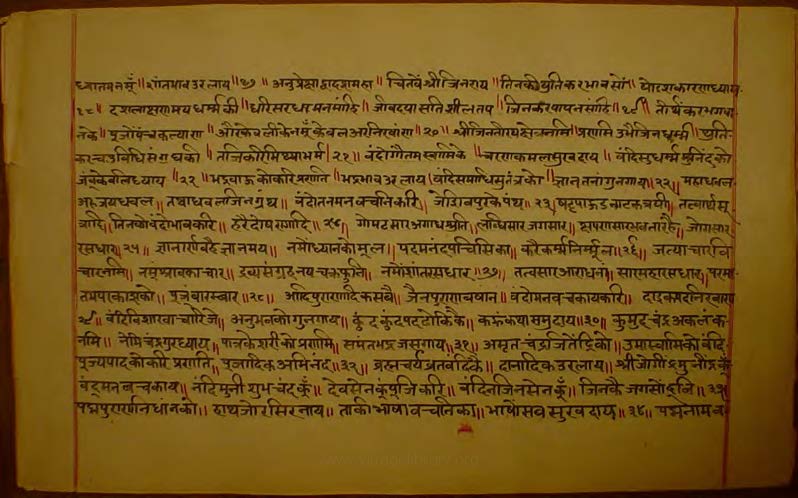 ध्यातमनमूँ॥ शांतभावउरलाय॥१७॥ अनुप्रेक्षाद्वादशमहा॥ चितवेंश्रीजिनराय॥ तिनकीथुतिकरभावसों॥ षोडशकारणध्याय॥
१८॥ दशलाक्षणमयधर्म्मकी॥ धरिसरधामनमांहि॥ जीवदयासतिशीलतप॥ जिनकरपापनसांहि॥१९॥ तीर्थंकरभगवा
नके॥ पूजोंपंचकल्याण॥ औरकेवलीकेनमूँकेवलअरनिरवाण॥२०॥ श्रीजिनतीरथक्षेत्रनमि॥ प्रणमिउभैजिनधर्म्म॥ थुति
काचउविधिसंघकी॥ तजिकरिमिथ्याभर्म॥२१॥ वंदोंगौतमस्वामिके॥ चरणकमलसुखदाय॥ वंदिसुधर्म्ममुनिंदको
जंबूकेवलिध्याय॥२२॥ भद्रबाऊकोकरिप्रणति॥ भद्रभावउरलाय॥ वंदिसमाधिसुतंत्रको॥ ज्ञानतनोंगुनगाय॥२२॥ महाधवल
अरुजयधवल॥ तथाधवलजिनग्रंथ॥ वंदोंतनमनवचनकरि॥ जेशिवपुरकेपंथ॥२३॥ षट्पाऊडनाटकत्रयी॥ तत्वार्थसू
त्रादि॥ तिनकोवंदोंभावकरि॥ हरैदोषरागादि॥२४॥ गोमटसारअगाधश्रुति॥ लब्धिसारजगसार॥ क्षपणसारभवतारहै॥ जोगसार
रसधार॥२५॥ ज्ञानार्णवहैज्ञानमय॥ नमोंध्यानकोमूल॥ पद्मनंदपच्चीसिका॥ करैकर्म्मनिर्म्मूल॥२६॥ जत्याचारवि
चारनमि॥ नमूंश्रावकाचार॥ द्रव्यसंग्रहनयचक्रफुनि॥ नमोंशांतरसधार॥२७॥ तत्वसारआराधनां॥ सारमहारसधार॥ परमा
तमप्रकाशको॥ पूजूंबारम्बार॥२८॥ आदिपुराणादिकसबै॥ जैनपुराणबखान॥ वंदोंमनवचकायकरि॥ दायकपदनिरवाण
२९॥ वंदिविशाखाचारिजे॥ अनुभवकोगुनगाय॥ कुंदकुंदपदढोकिकै॥ कहूंकथासमुदाय॥३०॥ कुमुदचंद्रअकलंक
नमि॥ नेमिचंद्रगुरध्याय॥ पात्रकेशरीकोप्रणमि॥ समंतभद्रजसगाय॥३१॥ अमृतचंद्रजतिंद्रको॥ उमास्वामिकोंवंदि
पूज्यपादकोंकरिप्रणति॥ पूजादिकअभिनंद॥३२॥ ब्रह्मचर्यव्रतवंदिकै॥ दानादिकउरलाय॥ श्रीजोगींद्रमुनींद्रकूँ
वंदूमनवचकाय॥ वंदिमुनीशुभचंदकूँ॥ देवसेनकूंपूजिकरि॥ वंदिजिनसेनकूँ॥ जिनकैजगसोंदूजि॥३३
पद्मपुराणनिधानको॥ हाथजोरसिरनाय॥ ताकीभाषावचनिका॥ भाषोंसवसुखदाय॥३४॥ पद्मनामब